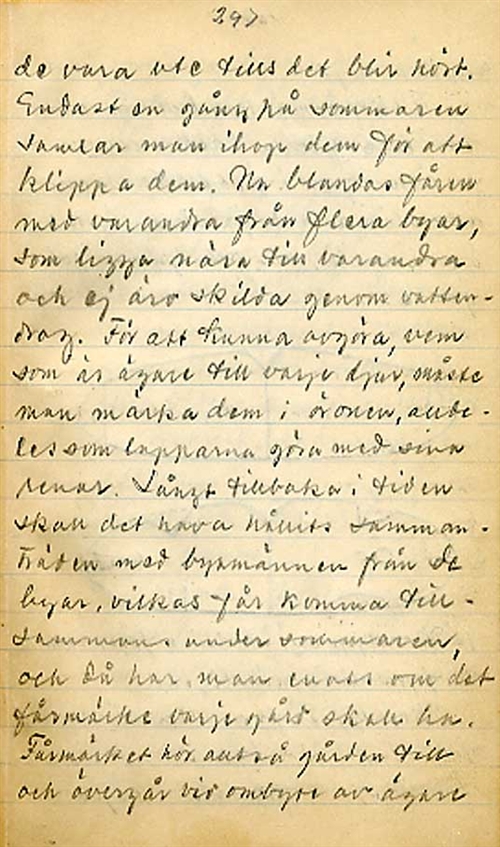 297
de vara ute tills det blir höst.
Endast en gång på sommaren
samlar man ihop dem för att
klippa dem. Nu blandas fåren
med varandra från flera byar,
som ligga nära till varandra
och ej äro skilda genom vatten-
drag. För att kunna avgöra, vem
som är ägare till varje djur, måste
man märka dem i öronen, alde-
les som lapparna göra med sina
renar. Långt tillbaka i tiden
skall det hava hållits samman-
träden med byamännen från de
byar, vilkas får komma till-
sammans under sommaren,
och då har man enats om det
fårmärke varje gård skall ha.
Fårmärket hör alltså gården till
och övergår vid ombyte av ägare